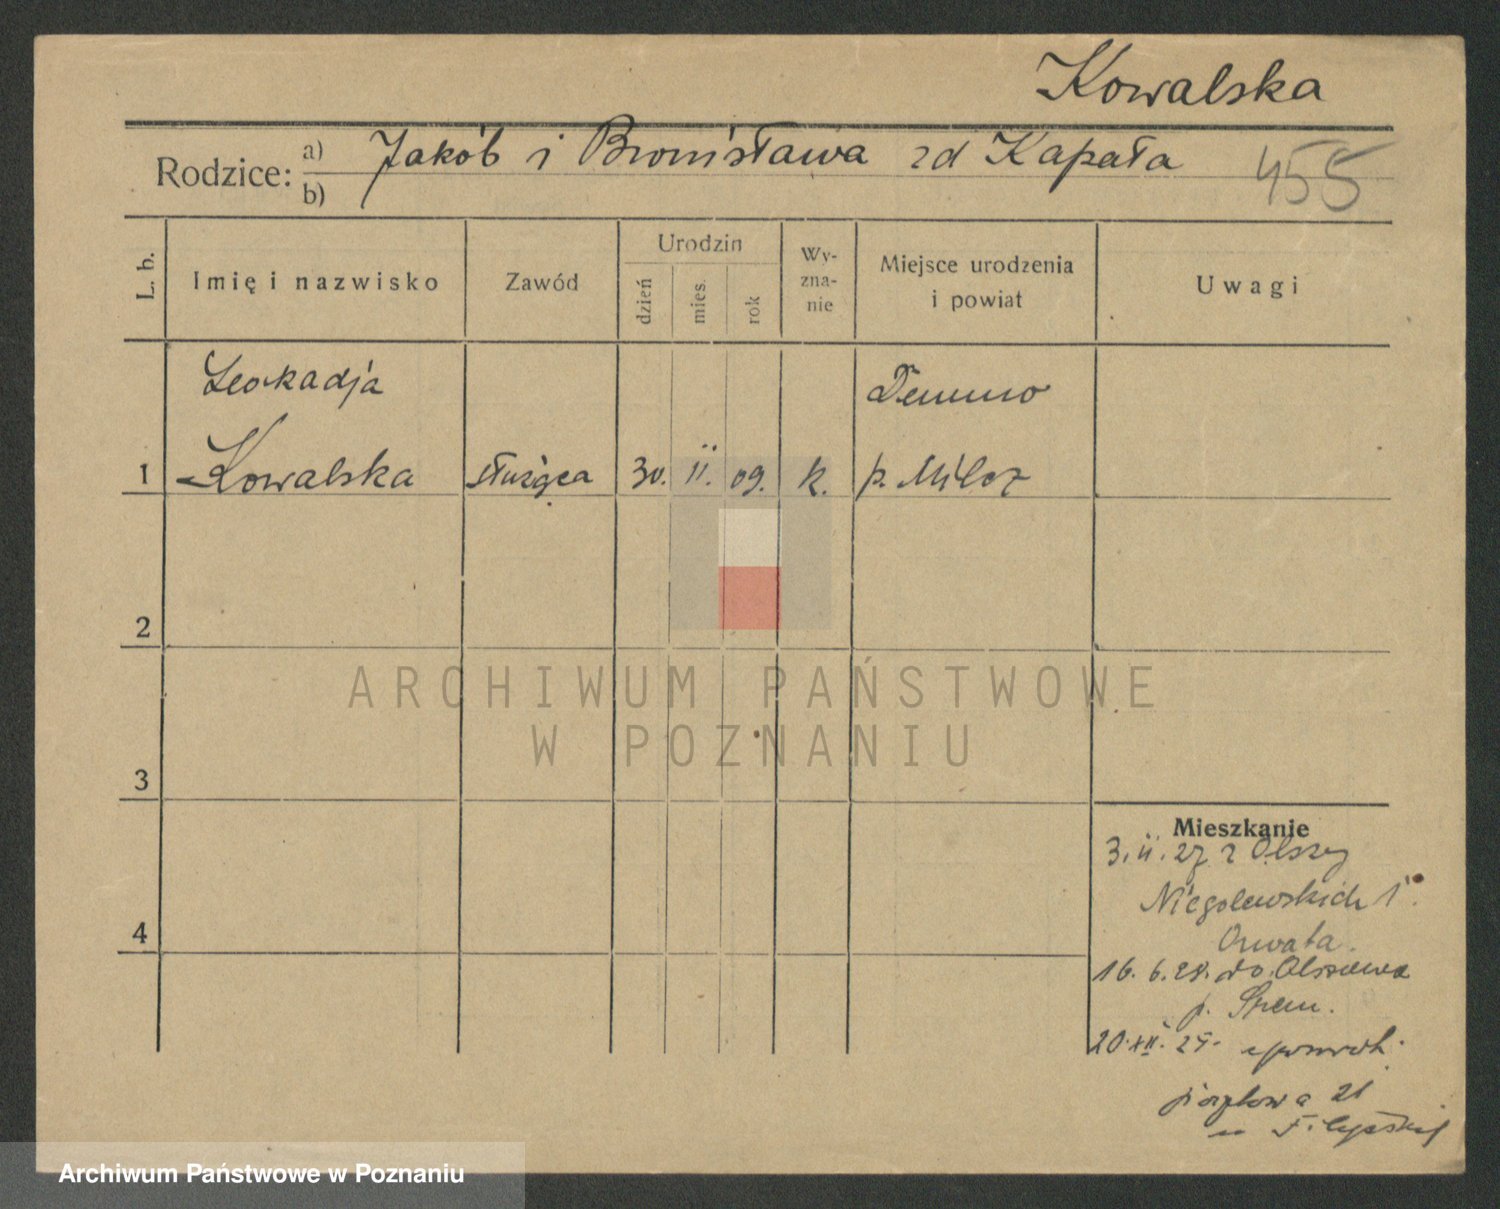 Kowalska
Rodzice: a) Jakób i Bronisława zd Kapała
b)
455
L. b.
Imię i nazwisko
Zawód
Urodzin
dzień
mies.
rok
Wy-
zna-
nie
Miejsce urodzenia
i powiat
Uwagi
Leokadja
1 Kowalska służąca 30. II. 09. k. p.
2
3
4
ARCHIWUM PAŃSTWOWE
W POZNANIU
Mieszkanie
3. II. 27 z Olszy
Niegolewskich 1
16. 6. 28. do
p. Śrem.
20. XII. 
21
Archiwum Państwowe w Poznaniu